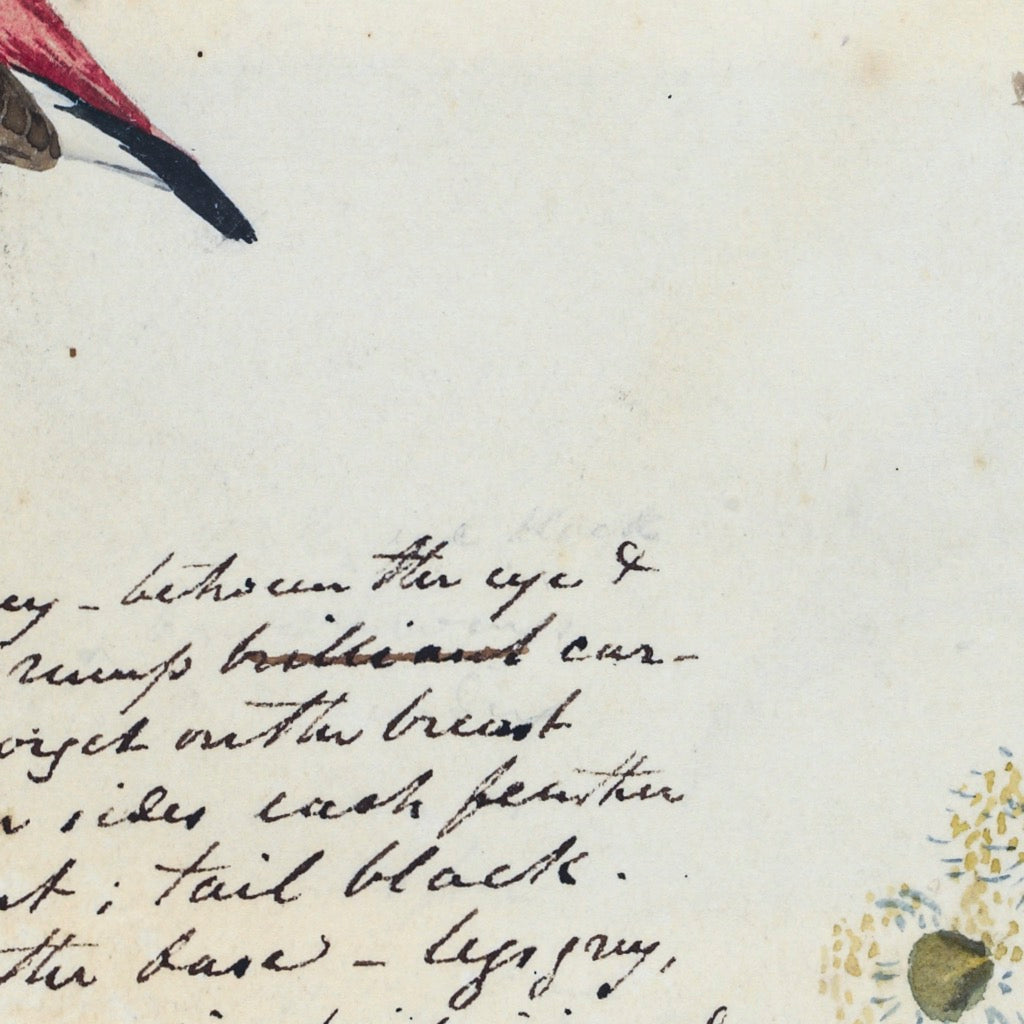 ey - between the eye &
rump brilliant car-
orget on the breast
sides each feather
nt ; tail black .
the base - legs grey,